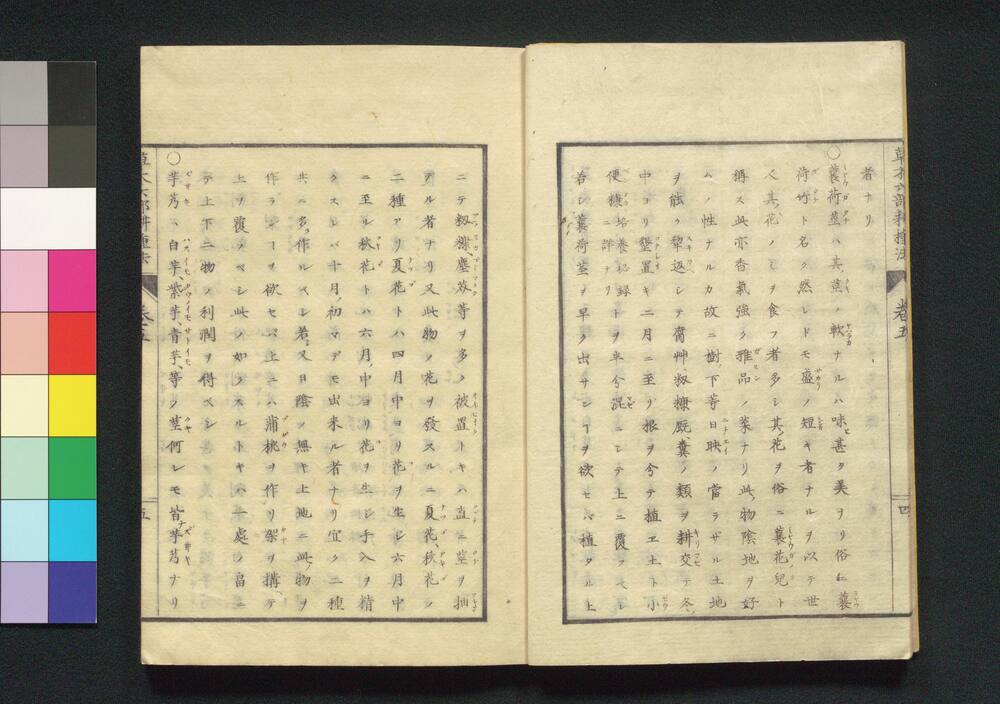 草木六部耕種法 卷五 四
者ナリ
○蘘荷莖ハ其莖ノ軟ナルハ味ヒ甚タ美ナリ俗ニ蘘
荷竹ト名ク然レドモ盛ノ短キ者ナルヲ以テ世
人其花ノミヲ食フ者多シ其花ヲ俗ニ蘘花兒ト
稱ス此亦香氣強ク雅品ノ菜ナリ此物陰地ヲ好
ムノ性ナルカ故ニ樹下等日映ノ當ラザル土地
ヲ能ク犂返シテ腐艸糠厩糞ノ類ヲ耕交テ冬
中ヨリ墾置キ二月ニ至リ根ヲ分テ植ヱ土ト小
便糠培養秘録ニ詳ナリトヲ半分混ニシテ上ニ覆フベシ
若シ蘘荷莖ヲ早ク出サンヿヲ欲セハ植タル上
ニテ籾糠塵芥等ヲ多ク被置トキハ直ニ莖ヲ抽
デル者ナリ又此物ノ花ヲ發スルニ夏花秋花ノ
二種アリ夏花トハ四月中ヨリ花ヲ生シ六月中
ニ至ル秋花トハ六月中ヨリ花ヲ生シ手入ヲ精
クスレバ十月初マデモ出來ル者ナリ宜ク二種
共ニ多ク作ルベシ若又日陰ノ無キ土地ニ此物ヲ
作ランヿヲ欲セバ上ニハ蒲桃ヲ作リ架ヲ搆テ
上ヲ覆フベシ此ノ如クスルトキハ一處ノ畠ニ
テ上下二物ノ利潤ヲ得ベシ
○芋芿ハ白芋、紫芋、青芋、等ノ莖何レモ皆芋芿ナリ
草木六部耕種法 卷五 五